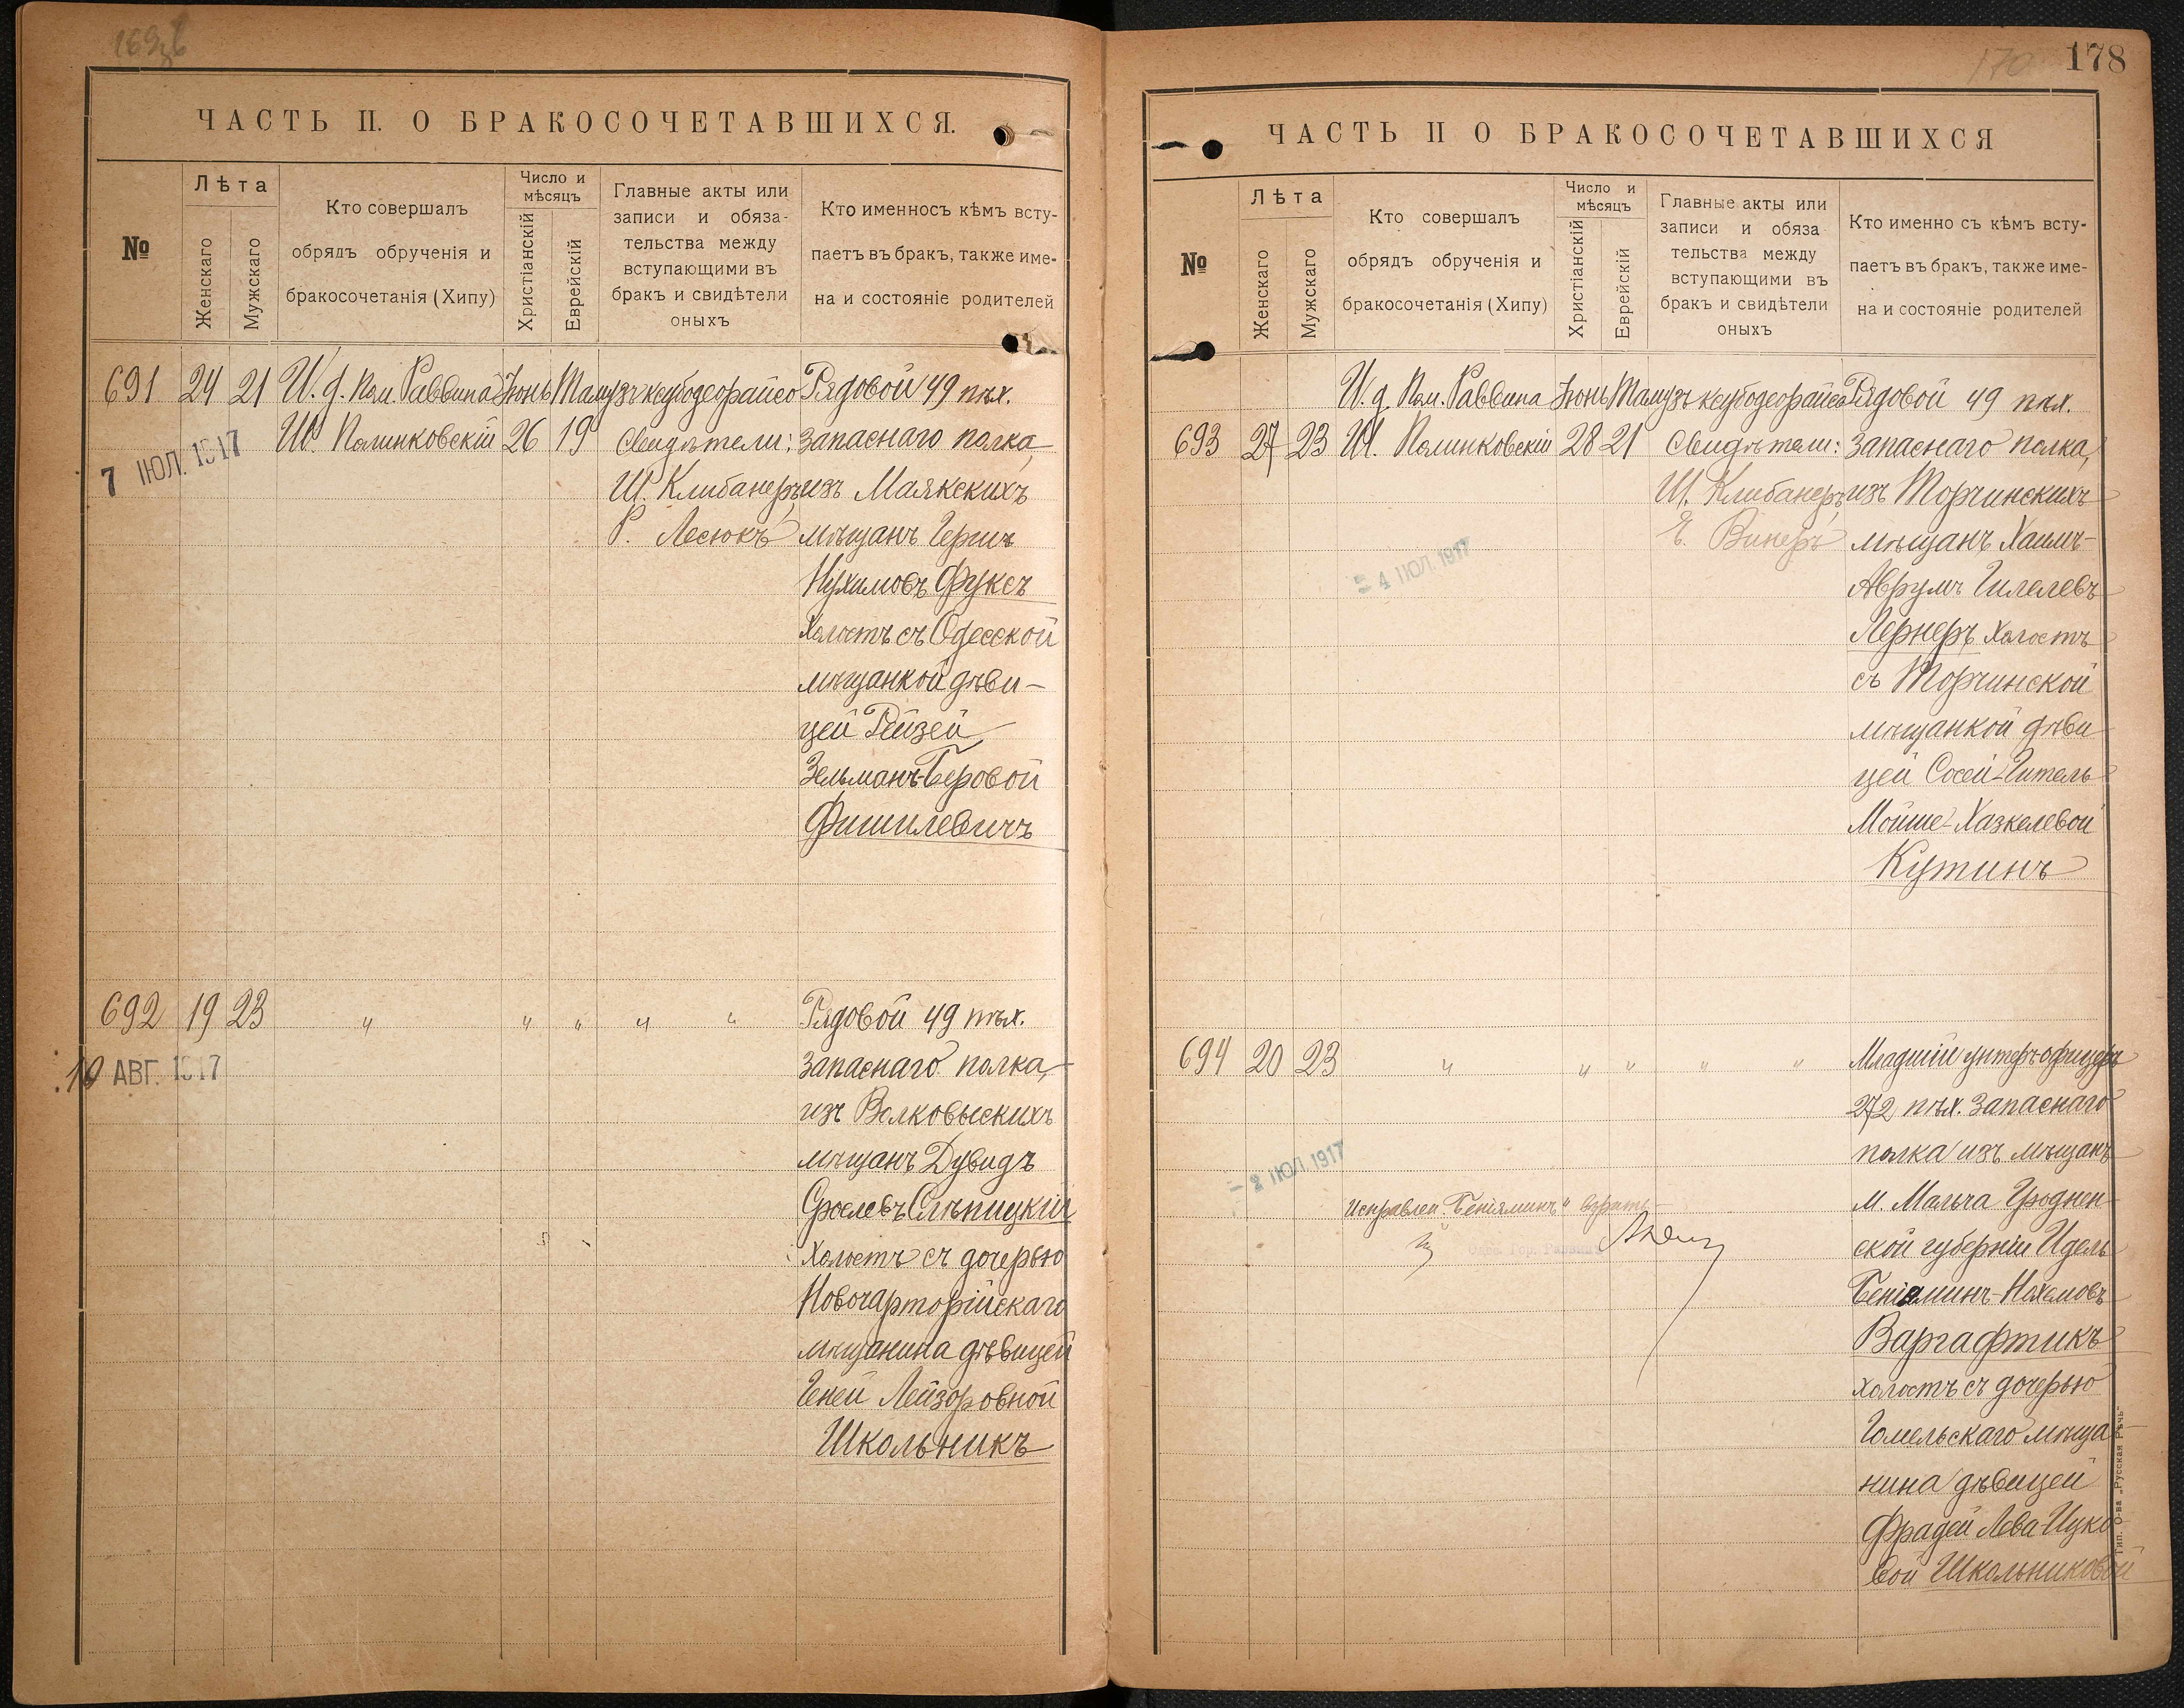 178
170
ЧАСТЬ II. О БРАКОСОЧЕТАВШИХСЯ.
№
Лѣта
Женскаго
Мужскаго
Кто совершалъ
обрядъ обрученія и
бракосочетанія (Хипу)
Число и
мѣсяцъ
Христіанскій
Еврейскій
Главные акты или
записи и обяза-
тельства между
вступающими въ
бракъ и свидѣтели
оныхъ
Кто именносъ кѣмъ всту-
паетъ въ бракъ, также име-
на и состояніе родителей
691 24 21 И. д. Пом. Раввина Іюнь Тамузъ ксубодеорайсо Рядовой 49 пѣх.
Ш. Полинковскій 26 19 Свидѣтели: запаснаго полка,
7 ІЮЛ. 1917
Ш. Клибанеръ, изъ Маякскихъ
Р. Лесюкъ мѣщанъ Гершъ
Нухимовъ Фуксъ
холостъ съ Одесской
мѣщанкой дѣви-
цей Рейзей
Зельманъ-Беровой
Фишилевичъ
692 19 23 " " " " " Рядовой 49 пѣх.
10 АВГ. 1917
запаснаго полка,
изъ Волковыскихъ
мѣщанъ Дувидъ
Сроелевъ Слѣпицкій
холостъ съ дочерью
Новочарторійскаго
мѣщанина дѣвицей
Геней Лейзоровной
Школьникъ
ЧАСТЬ II О БРАКОСОЧЕТАВШИХСЯ
№
Лѣта
Женскаго
Мужскаго
Кто совершалъ
обрядъ обрученія и
бракосочетанія (Хипу)
Число и
мѣсяцъ
Христіанскій
Еврейскій
Главные акты или
записи и обяза
тельства между
вступающими въ
бракъ и свидѣтели
оныхъ
Кто именно съ кѣмъ всту-
паетъ въ бракъ, также име-
на и состояніе родителей
И. д. Пом. Раввина Іюнь Тамузъ ксубодеорайсо Рядовой 49 пѣх.
693 27 23 Ш. Полинковскій 28 21 Свидѣтели: запаснаго полка,
Ш. Клибанеръ, изъ Торчинскихъ
Е. Винеръ мѣщанъ Хаимъ-
4 ІЮЛ. 1917
Аврумъ Гилелевъ
Лернеръ холостъ
съ Торчинской
мѣщанкой дѣви
цей Сосей-Гитель
Мойше-Хазкелевой
Кутинъ
694 20 23 " " " " " Младшій унтеръ-офицеръ
272 пѣх. запаснаго
полка изъ мѣщанъ
2 ІЮЛ 1917
м. Мальча Гроднен-
Исправлен. "Беніяминъ"
ской губерніи Идель
Беніяминъ-Нохемовъ
Варгафтикъ
холостъ съ дочерью
Гомельскаго мѣща-
нина дѣвицей
Фрадей Лева-Ицко-
вой Школьниковой
Тип. О-ва „Русская Рѣчь"